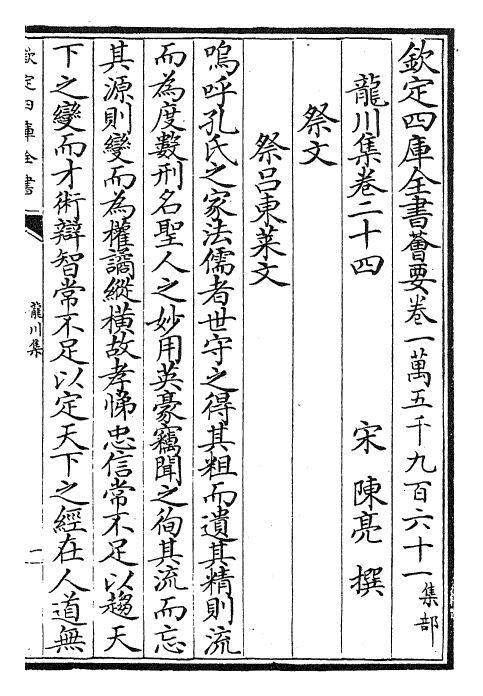 欽定四庫全書薈要卷一萬五千九百六十一集部
龍川集卷二十四　宋　陳亮　撰
祭文
祭呂東萊文
嗚呼孔氏之家法儒者世守之得其粗而遺其精則流
而為度數刑名聖人之妙用英豪竊聞之徇其流而忘
其源則變而為權譎縱橫故孝悌忠信常不足以趨天
下之變而才術辯智常不足以定天下之經在人道無
欽定四庫全書
龍川集
一